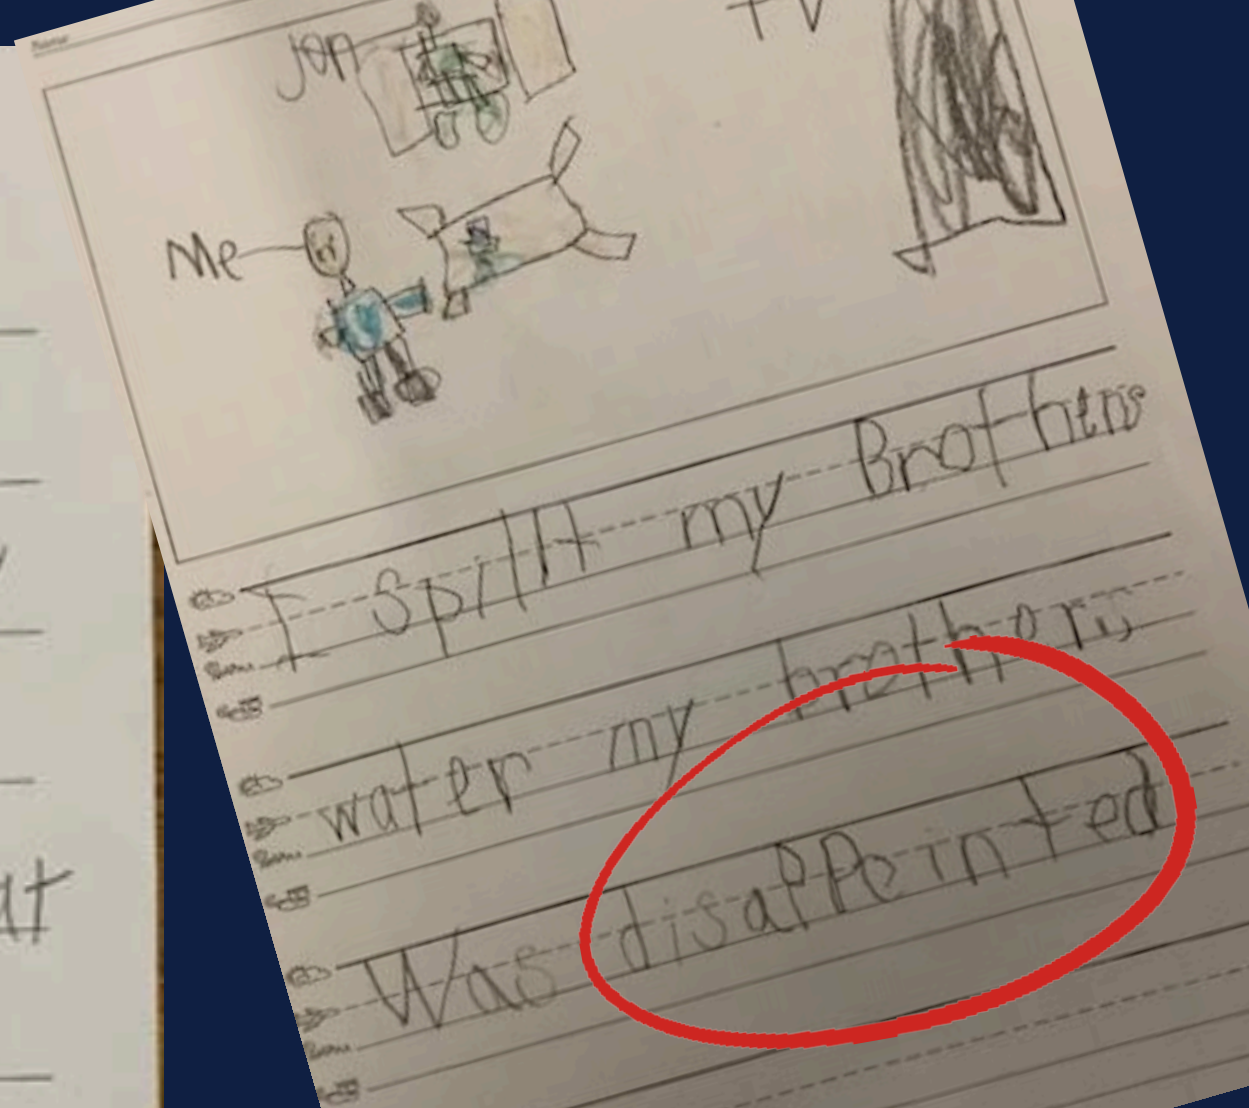 Name:
Jon
TV
Me
I spillt my Brothers
water my brothers
Was disappointed